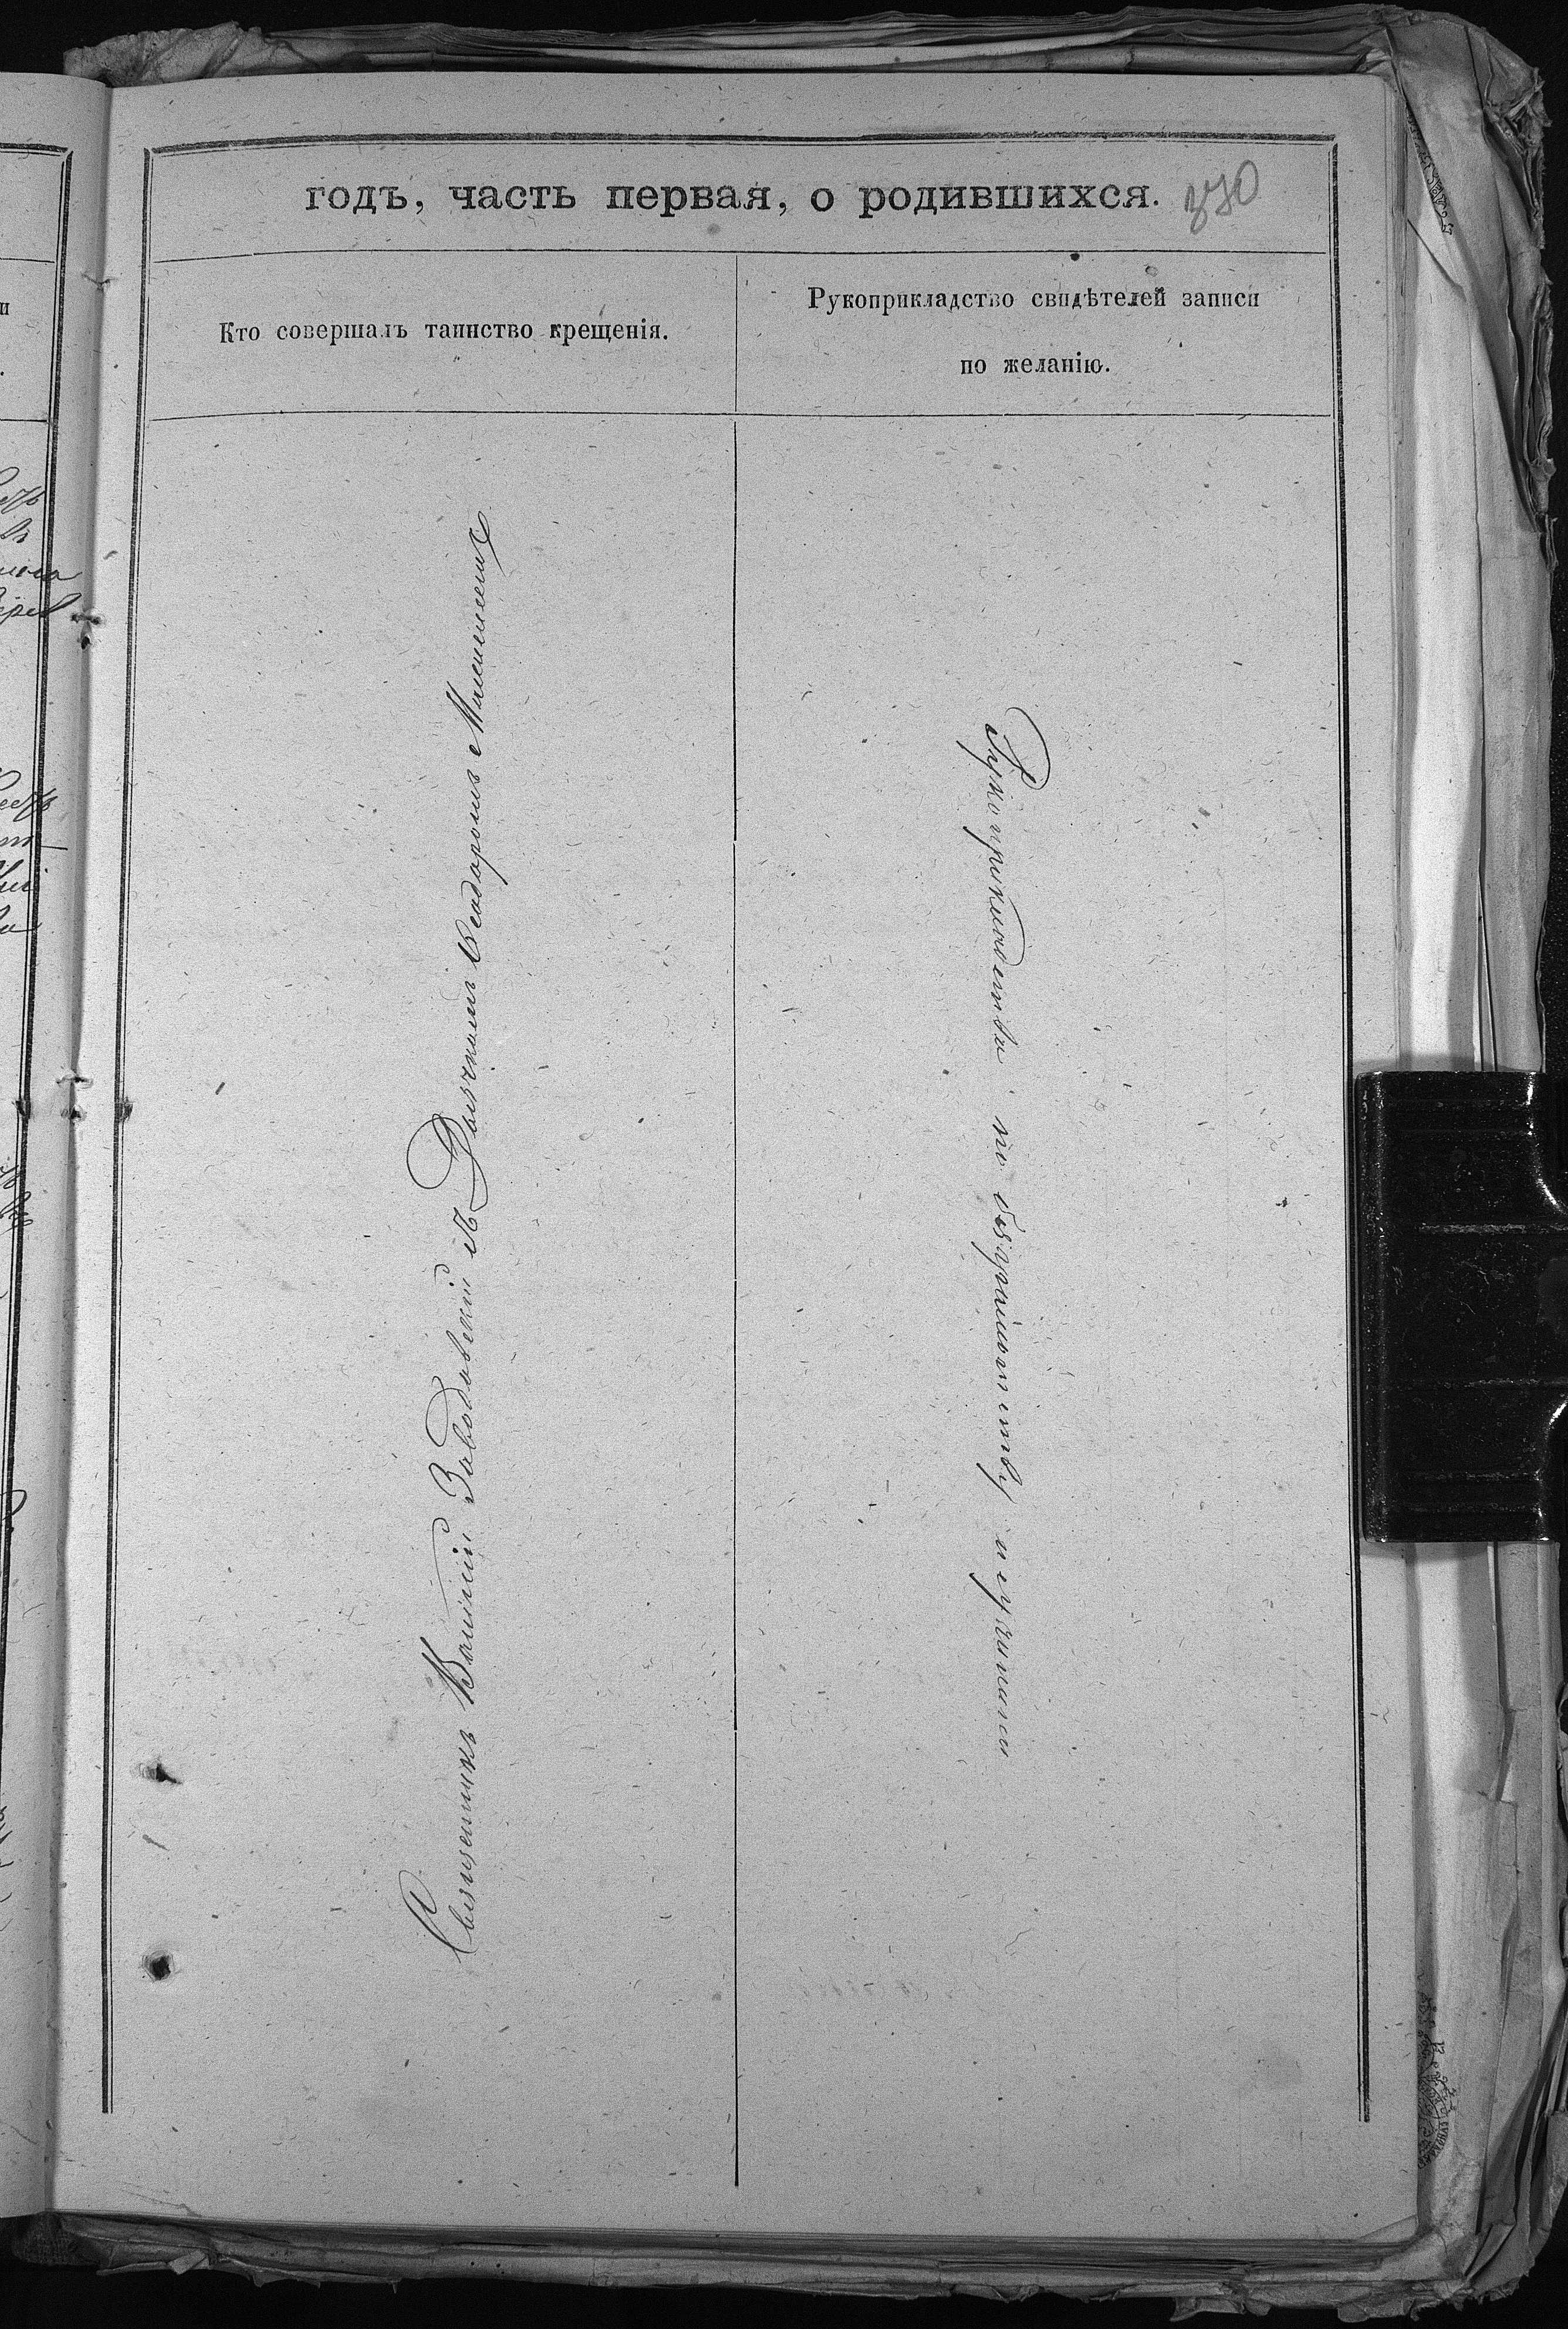 годъ, часть первая, о родившихся. 370
Кто совершалъ таинство крещенія.
Рукоприкладство свидѣтелей записи
по желанію.
Священникъ Завадовскій съ Дьячкомъ Ѳеодоромъ
Рукоприкладства по безграмотству неучинили